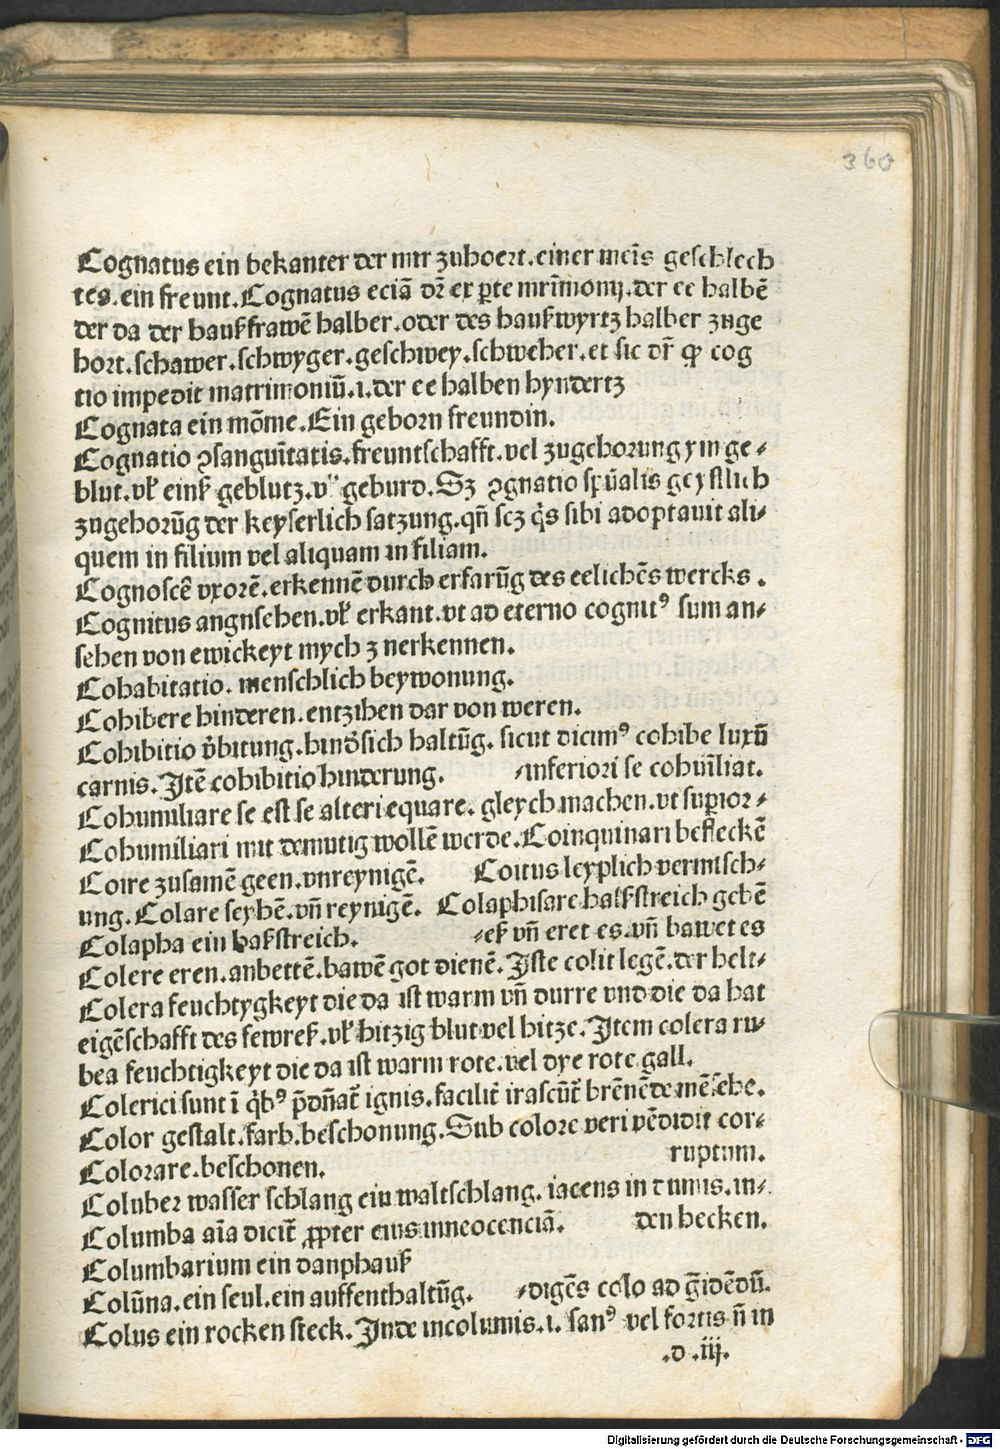 360
Cognatus ein bekanter der mir zuhoert. einer meīs geschlech
tes. ein freunt. Cognatus eciā dr̄ ex ꝑte mr̄imonij. der ee halbē
der da der haußfrawē halber. oder des haußwyrtz halber zuge
hort. schawer. schwyger. geschwey. schweher. et sic dr̄ ꝙ cog
tio impedit matrimoniū. i. der ee halben hyndertz
Cognata ein mōme. Ein geborn freundin.
Cognatio ꝯsanguītatis. freuntschafft. vel zugehorung yin ge⸗
blut. vl̓ einß geblutz. vn̄ geburd. Sz ꝯgnatio spūalis geystlich
zugehorūg der keyserlich satzung. qn̄ scz q̇s sibi adoptauit ali⸗
quem in filium vel aliquam in filiam.
Cognoscē vxorē. erkennē durch erfarūg des eelichēs wercks .
Cognitus angnsehen. vl̓ erkant. vt ad eterno cognitꝰ sum an⸗
sehen von ewickeyt mych z nerkennen.
Cohabitatio. menschlich beywonung.
Cohibere hinderen. entzihen dar von weren.
Cohibitio v̓bitung. hind̓sich haltūg. sicut dicimꝰ cohibe luxū
carnis. Itē cohibitio hinderung. ⸗inferiori se cohuīliat.
Cohumiliare se est se alteri equare. gleych machen. vt suꝑior⸗
Cohumiliari mit demutig wollē werde. Coinquinari befleckē
Coire zusamē geen. vnreynigē. Coitus leyplich vermisch⸗
ung. Colare seyhē. vn̄ reynigē. Colaphisare halßstreich gebē
Colapha ein halßstreich. ⸗eß vn̄ eret es. vn̄ bawet es
Colere eren. anbettē. bawē got dienē. Iste colit legē. der helt⸗
Colera feuchtygkeyt die da ist warm vn̄ durre vnd die da hat
eigēschafft des fewreß. vl̓ hitzig blut vel hitze. Item colera ru⸗
bea feuchtigkeyt die da ist warm rote. vel dye rote gall.
Colerici sunt ī q̇bꝰ p̄dn̄at̄ ignis. facilit̄ irascūt̄ brēnēde mēsche.
Color gestalt. farb. beschonung. Sub colore veri vēdidit cor⸗
Colorare. beschonen. ruptum.
Coluber wasser schlang ein waltschlang. iacens in dumis. in⸗
Columba aīa dicit̄ ꝓpter eius inneocenciā. den hecken.
Columbarium ein danphauß
Colūna. ein seul. ein auffenthaltūg. ⸗digēs colo ad ḡidēdū.
Colus ein rocken steck. Inde incolumis. i. sanꝰ vel fortis n̄ in
.d .iij.
Digitalisierung gefördert durch die Deutsche Forschungsgemeinschaft - DFG